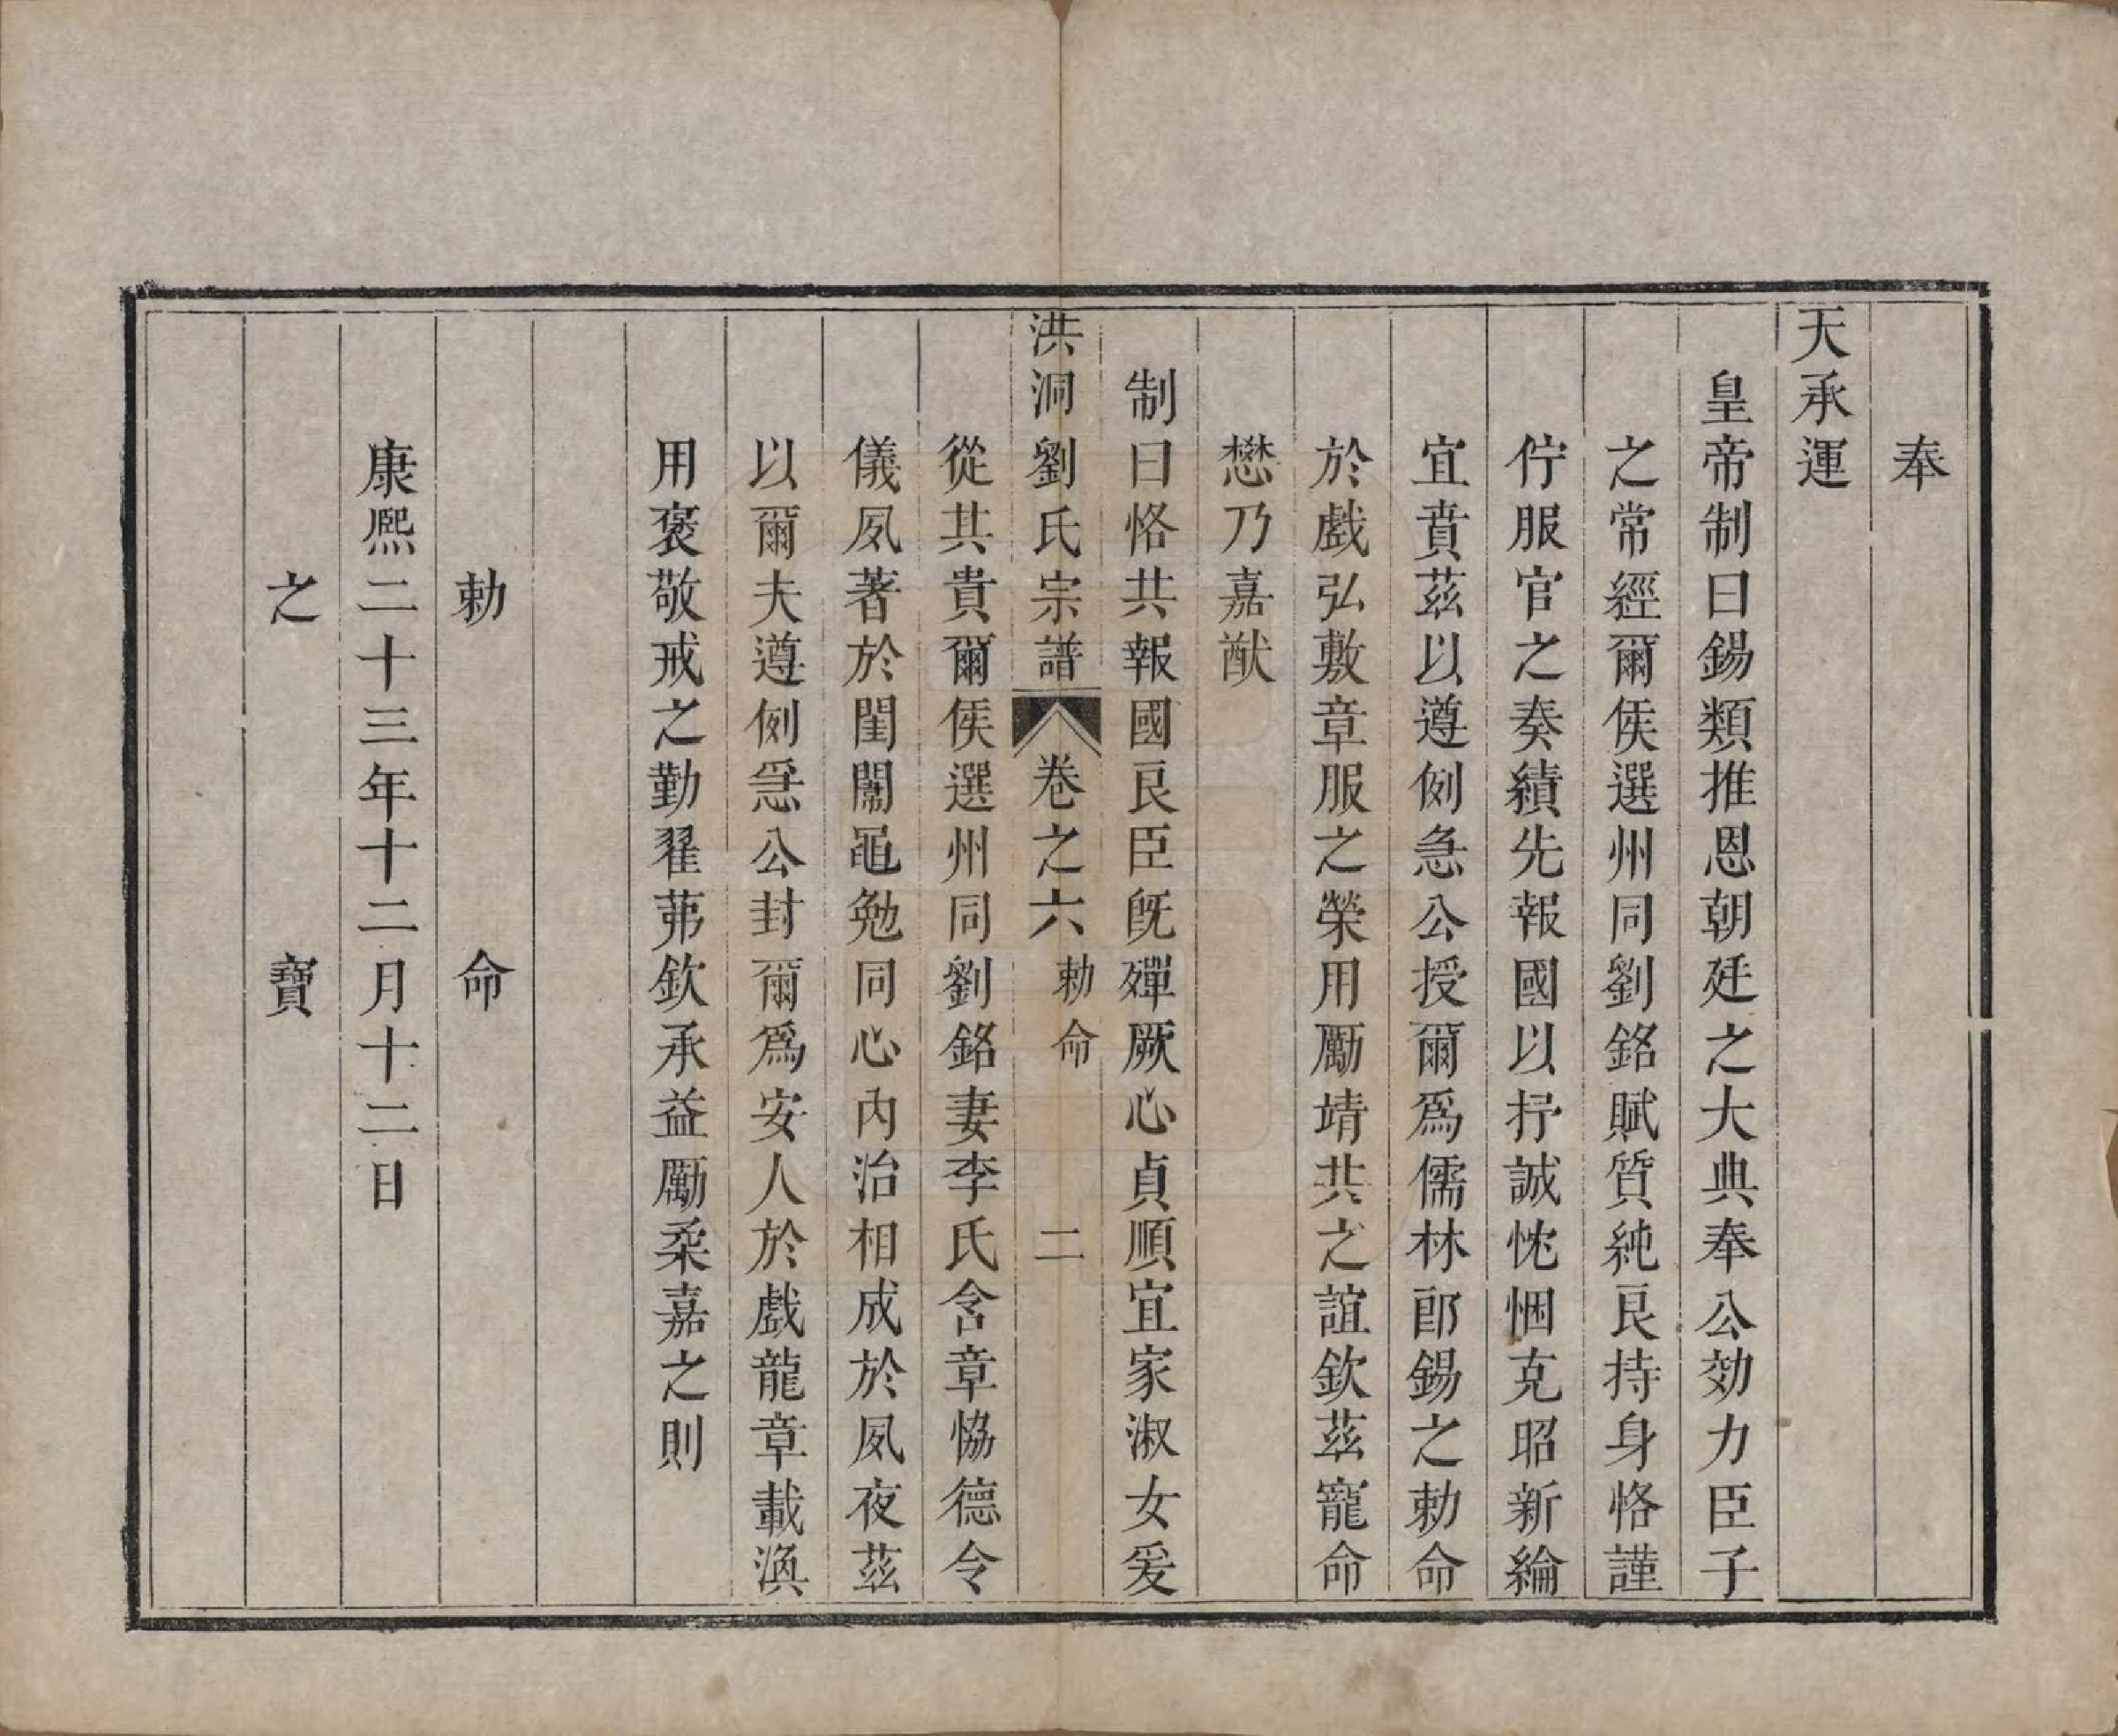 奉
天承運
皇帝制曰錫類推恩朝廷之大典奉公効力臣子
之常經爾矦選州同劉銘賦質純良持身恪謹
佇服官之奏績先報國以抒誠忱悃克昭新綸
宜賁茲以遵例急公授爾爲儒林郎錫之勅命
於戲弘敷章服之榮用勵靖共之誼欽茲寵命
懋乃嘉猷
制曰恪共報國良臣旣殫厥心貞順宜家淑女爰
洪洞劉氏宗譜 卷之六 勅命 二
從其貴爾矦選州同劉銘妻李氏含章恊德令
儀夙著於閨闈黽勉同心內治相成於夙夜茲
以爾夫遵例急公封爾爲安人於戲龍章載渙
用褒敬戒之勤翟茀欽承益勵柔嘉之則
勅命
康熙二十三年十二月十二日
之寶